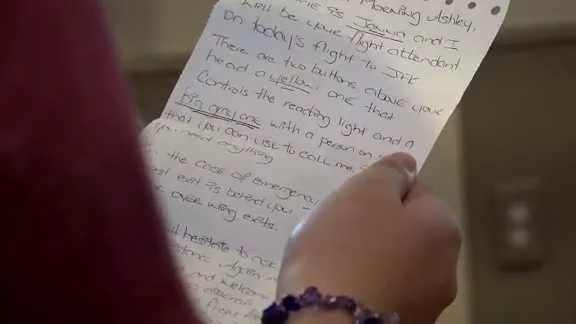 Morning Ashley,
is Janna and I
will be your flight attendant
on today's flight to JFK
There are two buttons above your
head a yellow one that
Controls the reading light and a
big grey one with a person on
that you can use to call me
you need anything
the case of emergency
exit is behind you
over wing exits.
hesitate to ask
again
and welcome